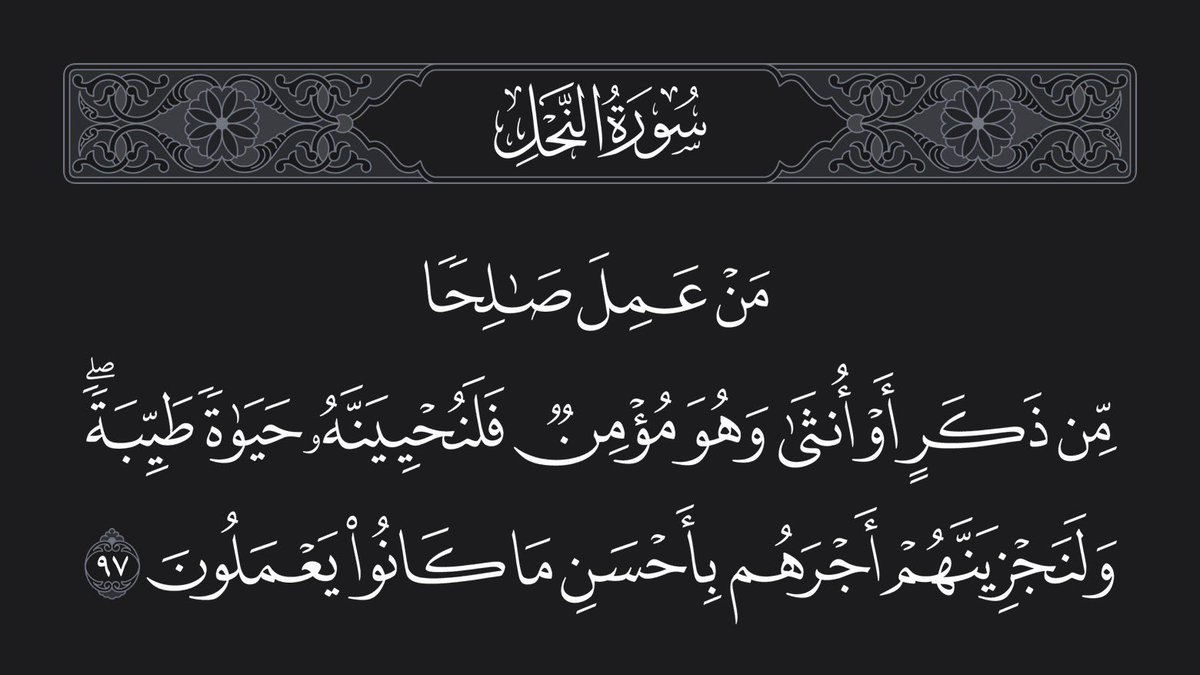 سُورَةُ النَّحْلِ
مَنْ عَمِلَ صَـٰلِحًا
مِّن ذَكَرٍ أَوْ أُنثَىٰ وَهُوَ مُؤْمِنٌ فَلَنُحْيِيَنَّهُۥ حَيَوٰةً طَيِّبَةً ۖ
وَلَنَجْزِيَنَّهُمْ أَجْرَهُم بِأَحْسَنِ مَا كَانُوا۟ يَعْمَلُونَ ٩٧